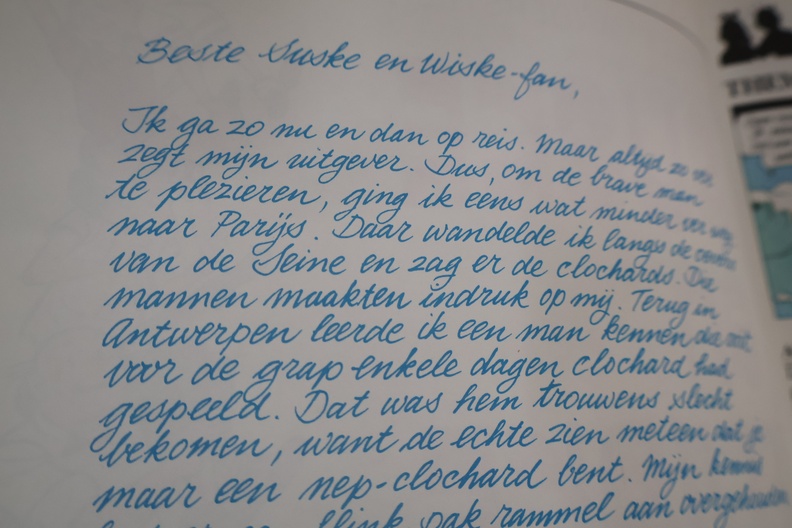 Beste Suske en Wiske-fan,
Ik ga zo nu en dan op reis. Maar altijd zo ver
zegt mijn uitgever. Dus, om de brave man
te plezieren, ging ik eens wat minder ver weg
naar Parijs. Daar wandelde ik langs de oevers
van de Seine en zag er de clochards. Die
mannen maakten indruk op mij. Terug in
Antwerpen leerde ik een man kennen die ooit
voor de grap enkele dagen clochard had
gespeeld. Dat was hem trouwens slecht
bekomen, want de echte zien meteen dat je
maar een nep-clochard bent. Mijn kennis
flink pak rammel aan overgehouden